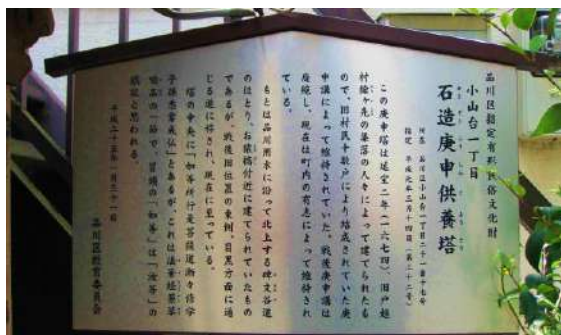 品川区指定有形民俗文化財
小山台一丁目
石造庚申供養塔
所在 品川区小山台一丁目二十一番十七号
指定 平成元年三月十四日(第三十二号)
この庚申塔は延宝二年(一六七四)、旧戸越
村鎗ヶ先の集落の人々によって建てられたも
ので、旧村民十数戸により結成されていた庚
申講によって維持されていた。戦後庚申講は
廃絶し、現在は町内の有志によって維持され
ている。
もとは品川用水に沿って北上する碑文谷道
のほとり、お猿橋付近に建てられていたもの
であるが、戦後旧位置の東側、目黒方面に通
じる道に移され、現在に至っている。
塔の中央に「如等所行是菩薩道漸々修学
子孫悉當成仏」とあるが、これは法華経薬草
喩品の一節で、冒頭の「如等」は「汝等」の
誤記と思われる。
平成二十五年一月三十一日
品川区教育委員会